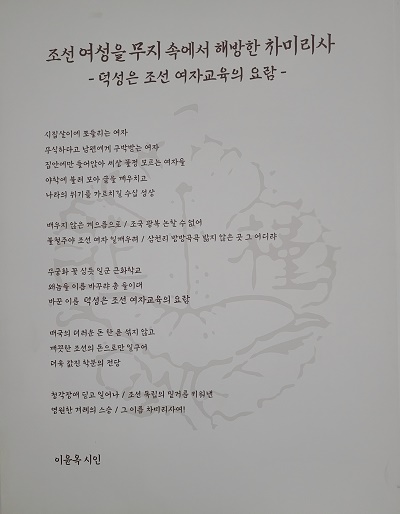 조선 여성을 무지 속에서 해방한 차미리사
- 덕성은 조선 여자교육의 요람 -
시집살이에 쪼들리는 여자
무식하다고 남편에게 구박받는 여자
집안에만 틀어앉아 세상 물정 모르는 여자들
야학에 불러 모아 글을 깨우치고
나라의 위기를 가르치길 수십 성상
배우지 않은 게으름으로 / 조국 광복 논할 수 없어
불철주야 조선 여자 일깨우려 / 삼천리 방방곡곡 밟지 않은 곳 그 어디랴
무궁화 꽃 심듯 일군 근화학교
왜놈들 이름 바꾸라 총 들이대
바꾼 이름 덕성은 조선 여자교육의 요람
매국의 더러운 돈 한 푼 섞지 않고
깨끗한 조선의 돈으로만 일구어
더욱 값진 학문의 전당
청각장애 딛고 일어나 / 조선 독립의 밑거름 키워낸
영원한 겨레의 스승 / 그 이름 차미리사여!
이윤옥 시인